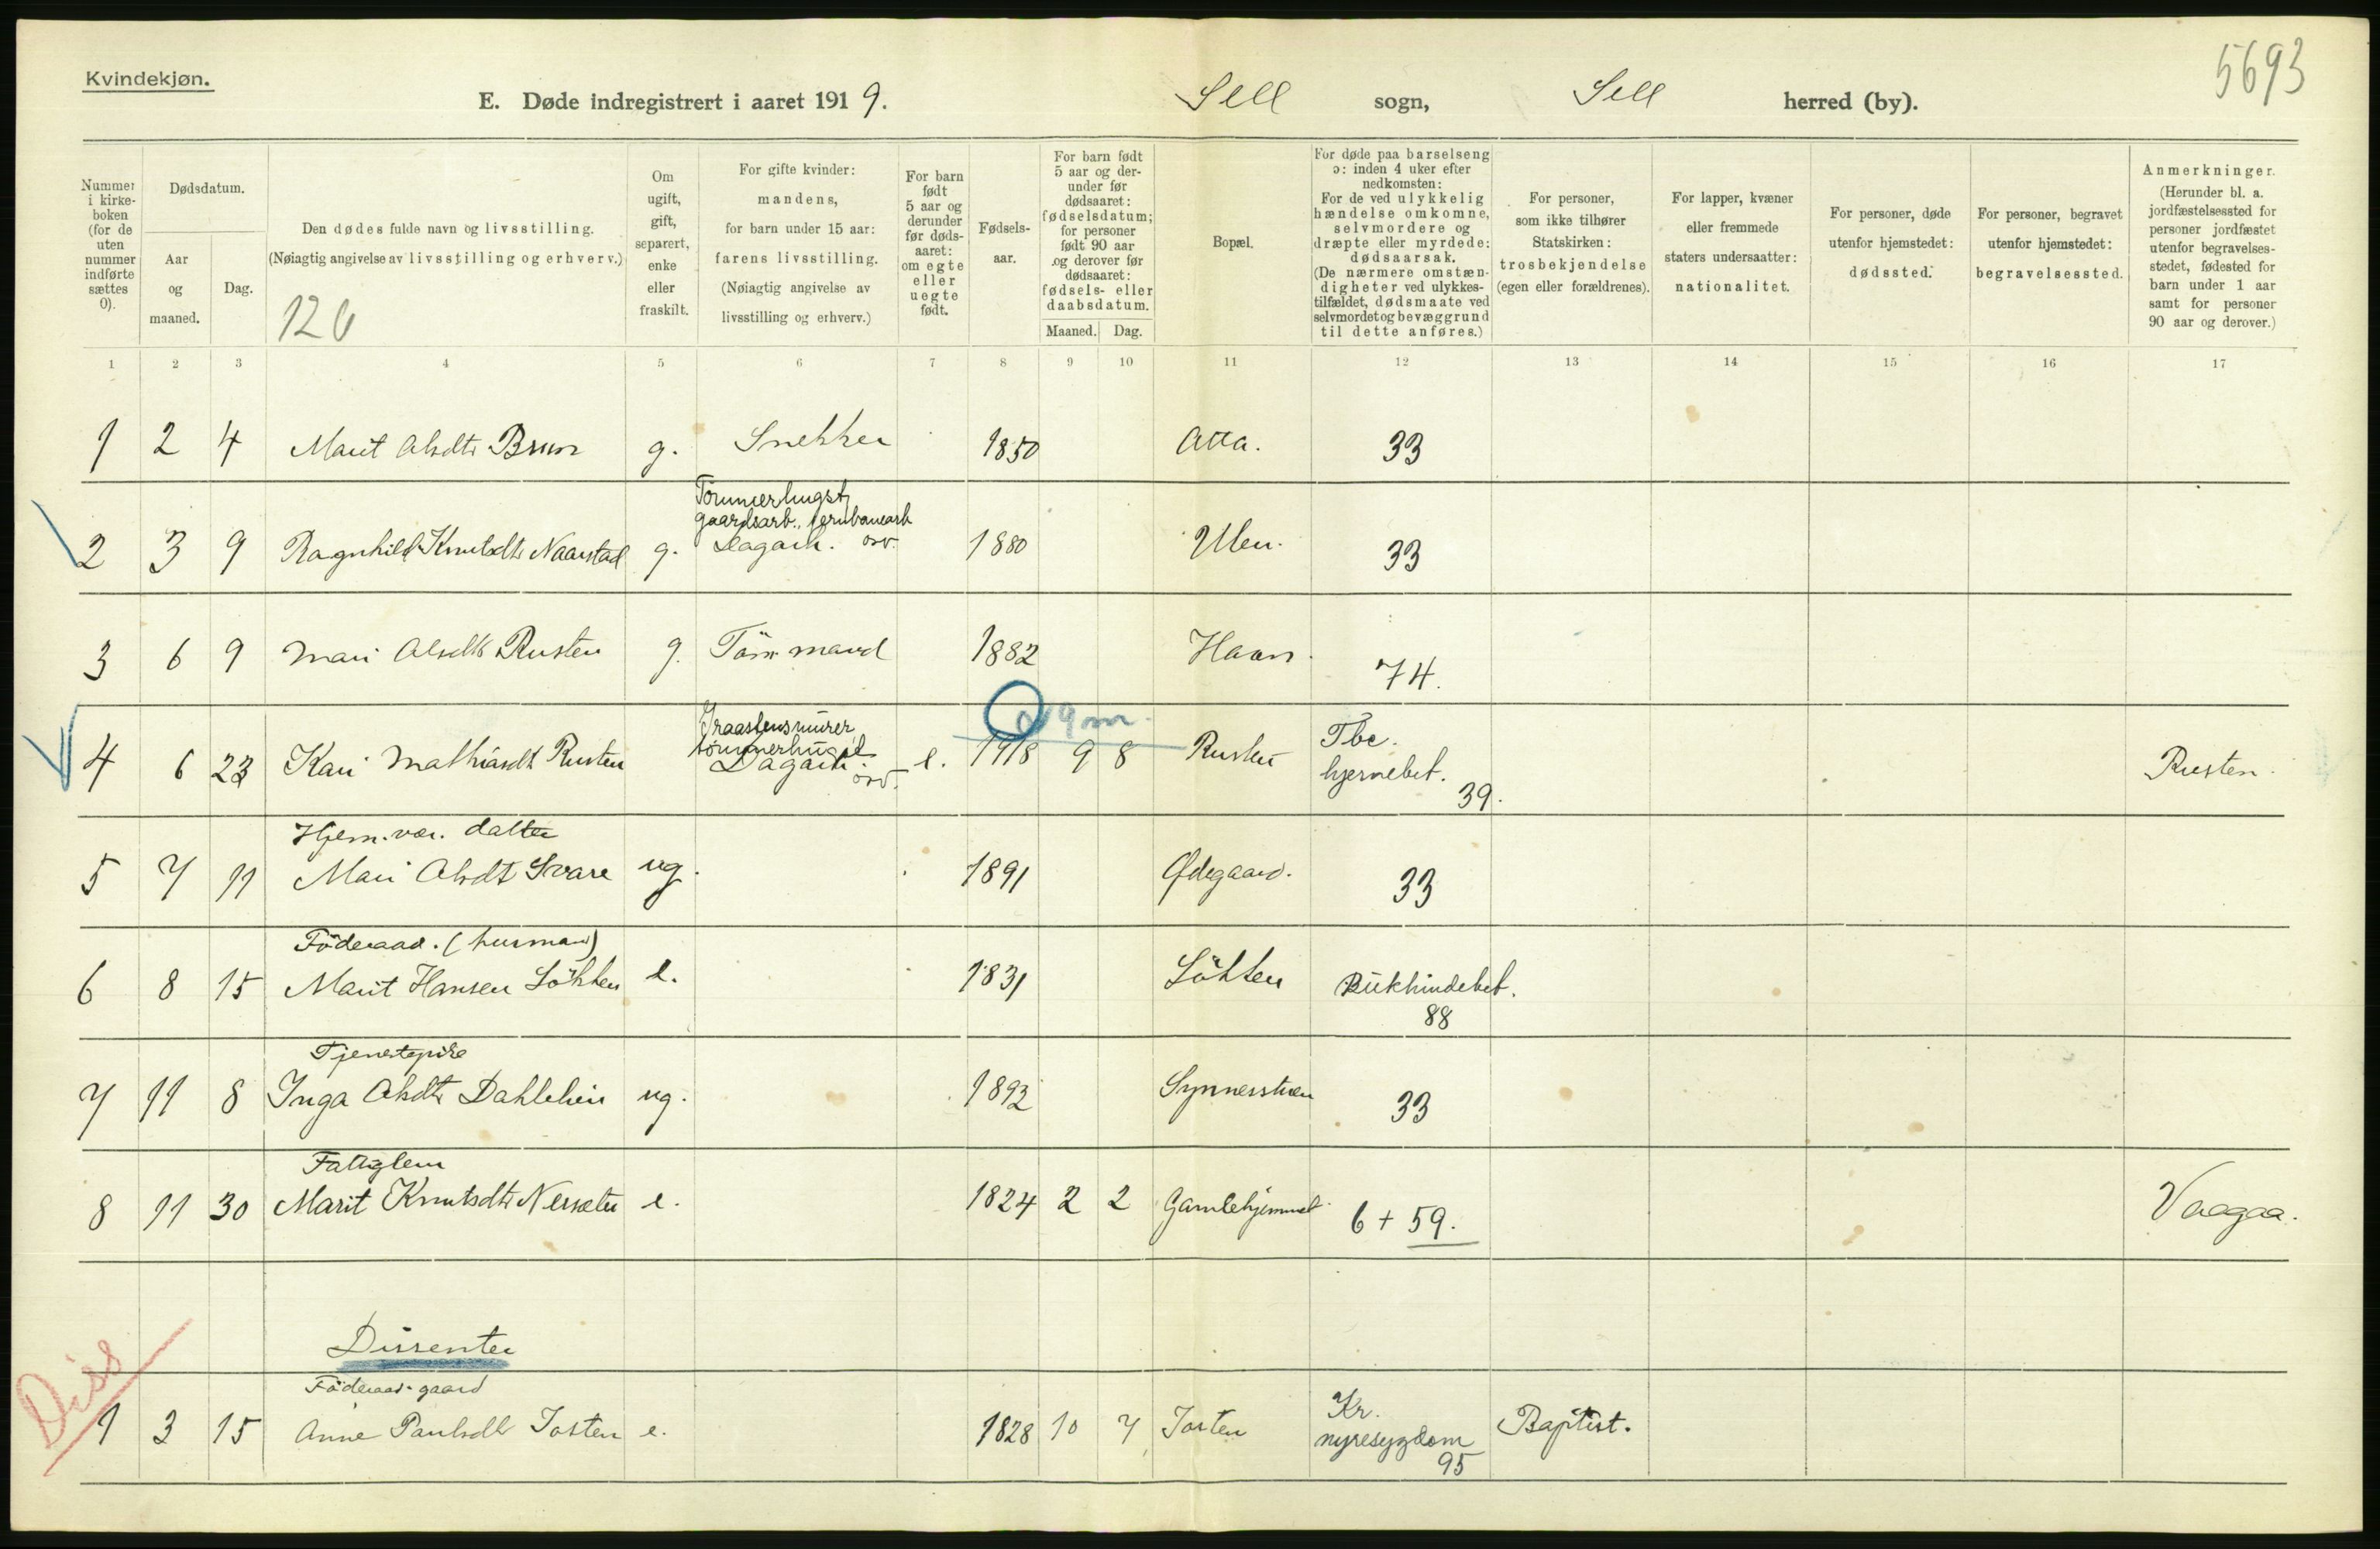 5693
Kvindekjøn.
E. Døde indregistrert i aaret 1919. Sell sogn, Sell herred (by).
Nummer i kirke-boken (for de uten nummer indførte sættes 0).
Dødsdatum.
Aar og maaned.
Dag.
Den dødes fulde navn og livsstilling.
(Nøiagtig angivelse av livsstilling og erhverv.)
126
Om ugift, gift, separert, enke eller fraskilt.
For gifte kvinder:
mandens,
for barn under 15 aar:
farens livsstilling.
(Nøiagtig angivelse av
livsstilling og erhverv.)
For barn født 5 aar og derunder før døds-aaret: om egte eller uegte født.
Fødsels-aar.
For barn født 5 aar og der-under før dødsaaret: fødselsdatum; for personer født 90 aar og derover før dødsaaret: fødsels- eller daabsdatum.
Maaned. Dag.
Bopæl.
For døde paa barselseng
ɔ: inden 4 uker efter
nedkomsten:
For de ved ulykkelig
hændelse omkomne,
selvmordere og
dræpte eller myrdede:
dødsaarsak.
(De nærmere omstæn-
digheter ved ulykkes-
tilfældet, dødsmaate ved
selvmordet og bevæggrund
til dette anføres.)
For personer,
som ikke tilhører
Statskirken:
trosbekjendelse
(egen eller forældrenes).
For lapper, kvæner
eller fremmede
staters undersaatter:
nationalitet.
For personer, døde
utenfor hjemstedet:
dødssted.
For personer, begravet
utenfor hjemstedet:
begravelsessted.
Anmerkninger.
(Herunder bl. a.
jordfæstelsessted for
personer jordfæstet
utenfor begravelses-
stedet, fødested for
barn under 1 aar
samt for personer
90 aar og derover.)
1 2 3 4 5 6 7 8 9 10 11 12 13 14 15 16 17
1 2 4 Marit Olsdtr Brun g. Snekker 1850 Otta. 33
Tömmerhugst,
gaardsarb., jernbanearb
2 3 9 Ragnhild Knutsdtr Naarstad g. Dagarb. osv. 1880 Ulen. 33
3 6 9 Mari Olsdtr Rusten g. Töm mand 1882 Haan. 74.
9 m.
Graastensmürer,
tömmerhugst
4 6 23 Kari Mathiasdt Rusten Dagarb. osv. e. 1918 9 8 Rusten Tbc. hjernebet. 39. Rusten.
Hjem. vær. datter
5 7 11 Mari Olsdt Svare ug. 1891 Ødegaard. 33
Föderaad. (husmand)
6 8 15 Marit Hansen Lökken e. 1831 Lökken Bukhindebet. 88
Tjenestepike
7 11 8 Inga Olsdtr Dahlehein ug. 1892 33
Fattiglem
8 11 30 Marit Knutsdtr e. 1824 2 2 Gamlehjemmet 6 + 59. Vaagaa.
Dissenter
Diss
Föderaad-gaard
1 3 15 Anne Paulsdtr Josten e. 1828 10 7 Josten Kr. nyresygdom 95 Baptist.